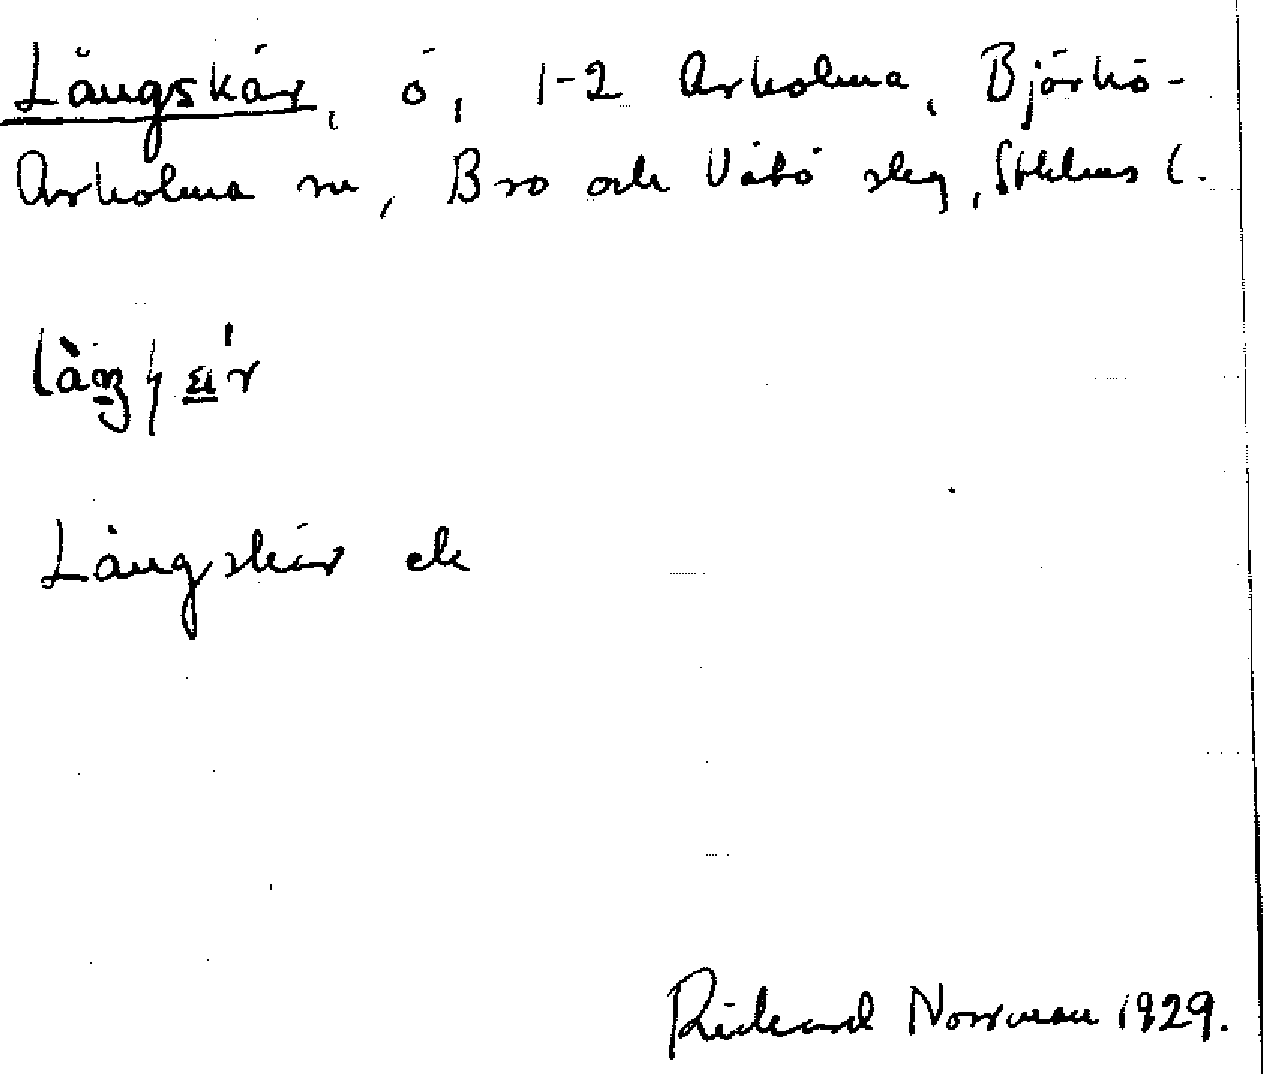 Långskär, ö, 1-2 Arholma, Björkö-
Arholma sn, Bro och Vätö slg, Sthlms l.
Långskär ek
Rickard Norrman 1929.